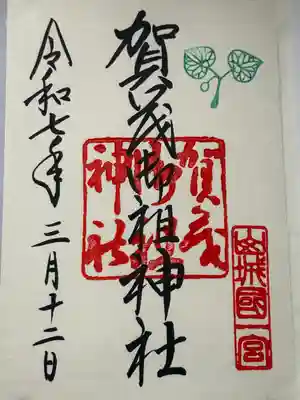 山城國一宮
賀茂御祖神社
賀茂御祖神社
令和七年 三月十二日